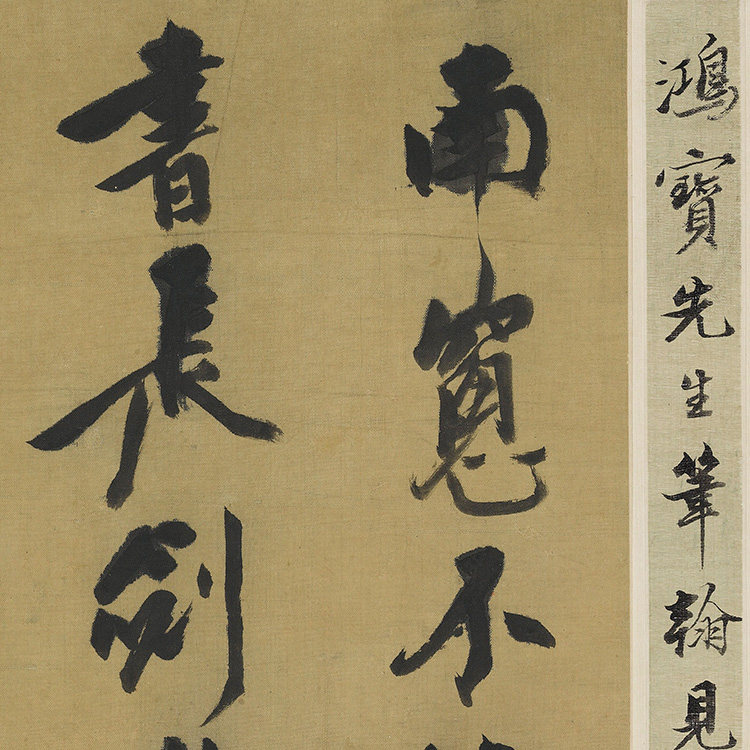 鴻寶先生筆翰見
南窻不
書長劍